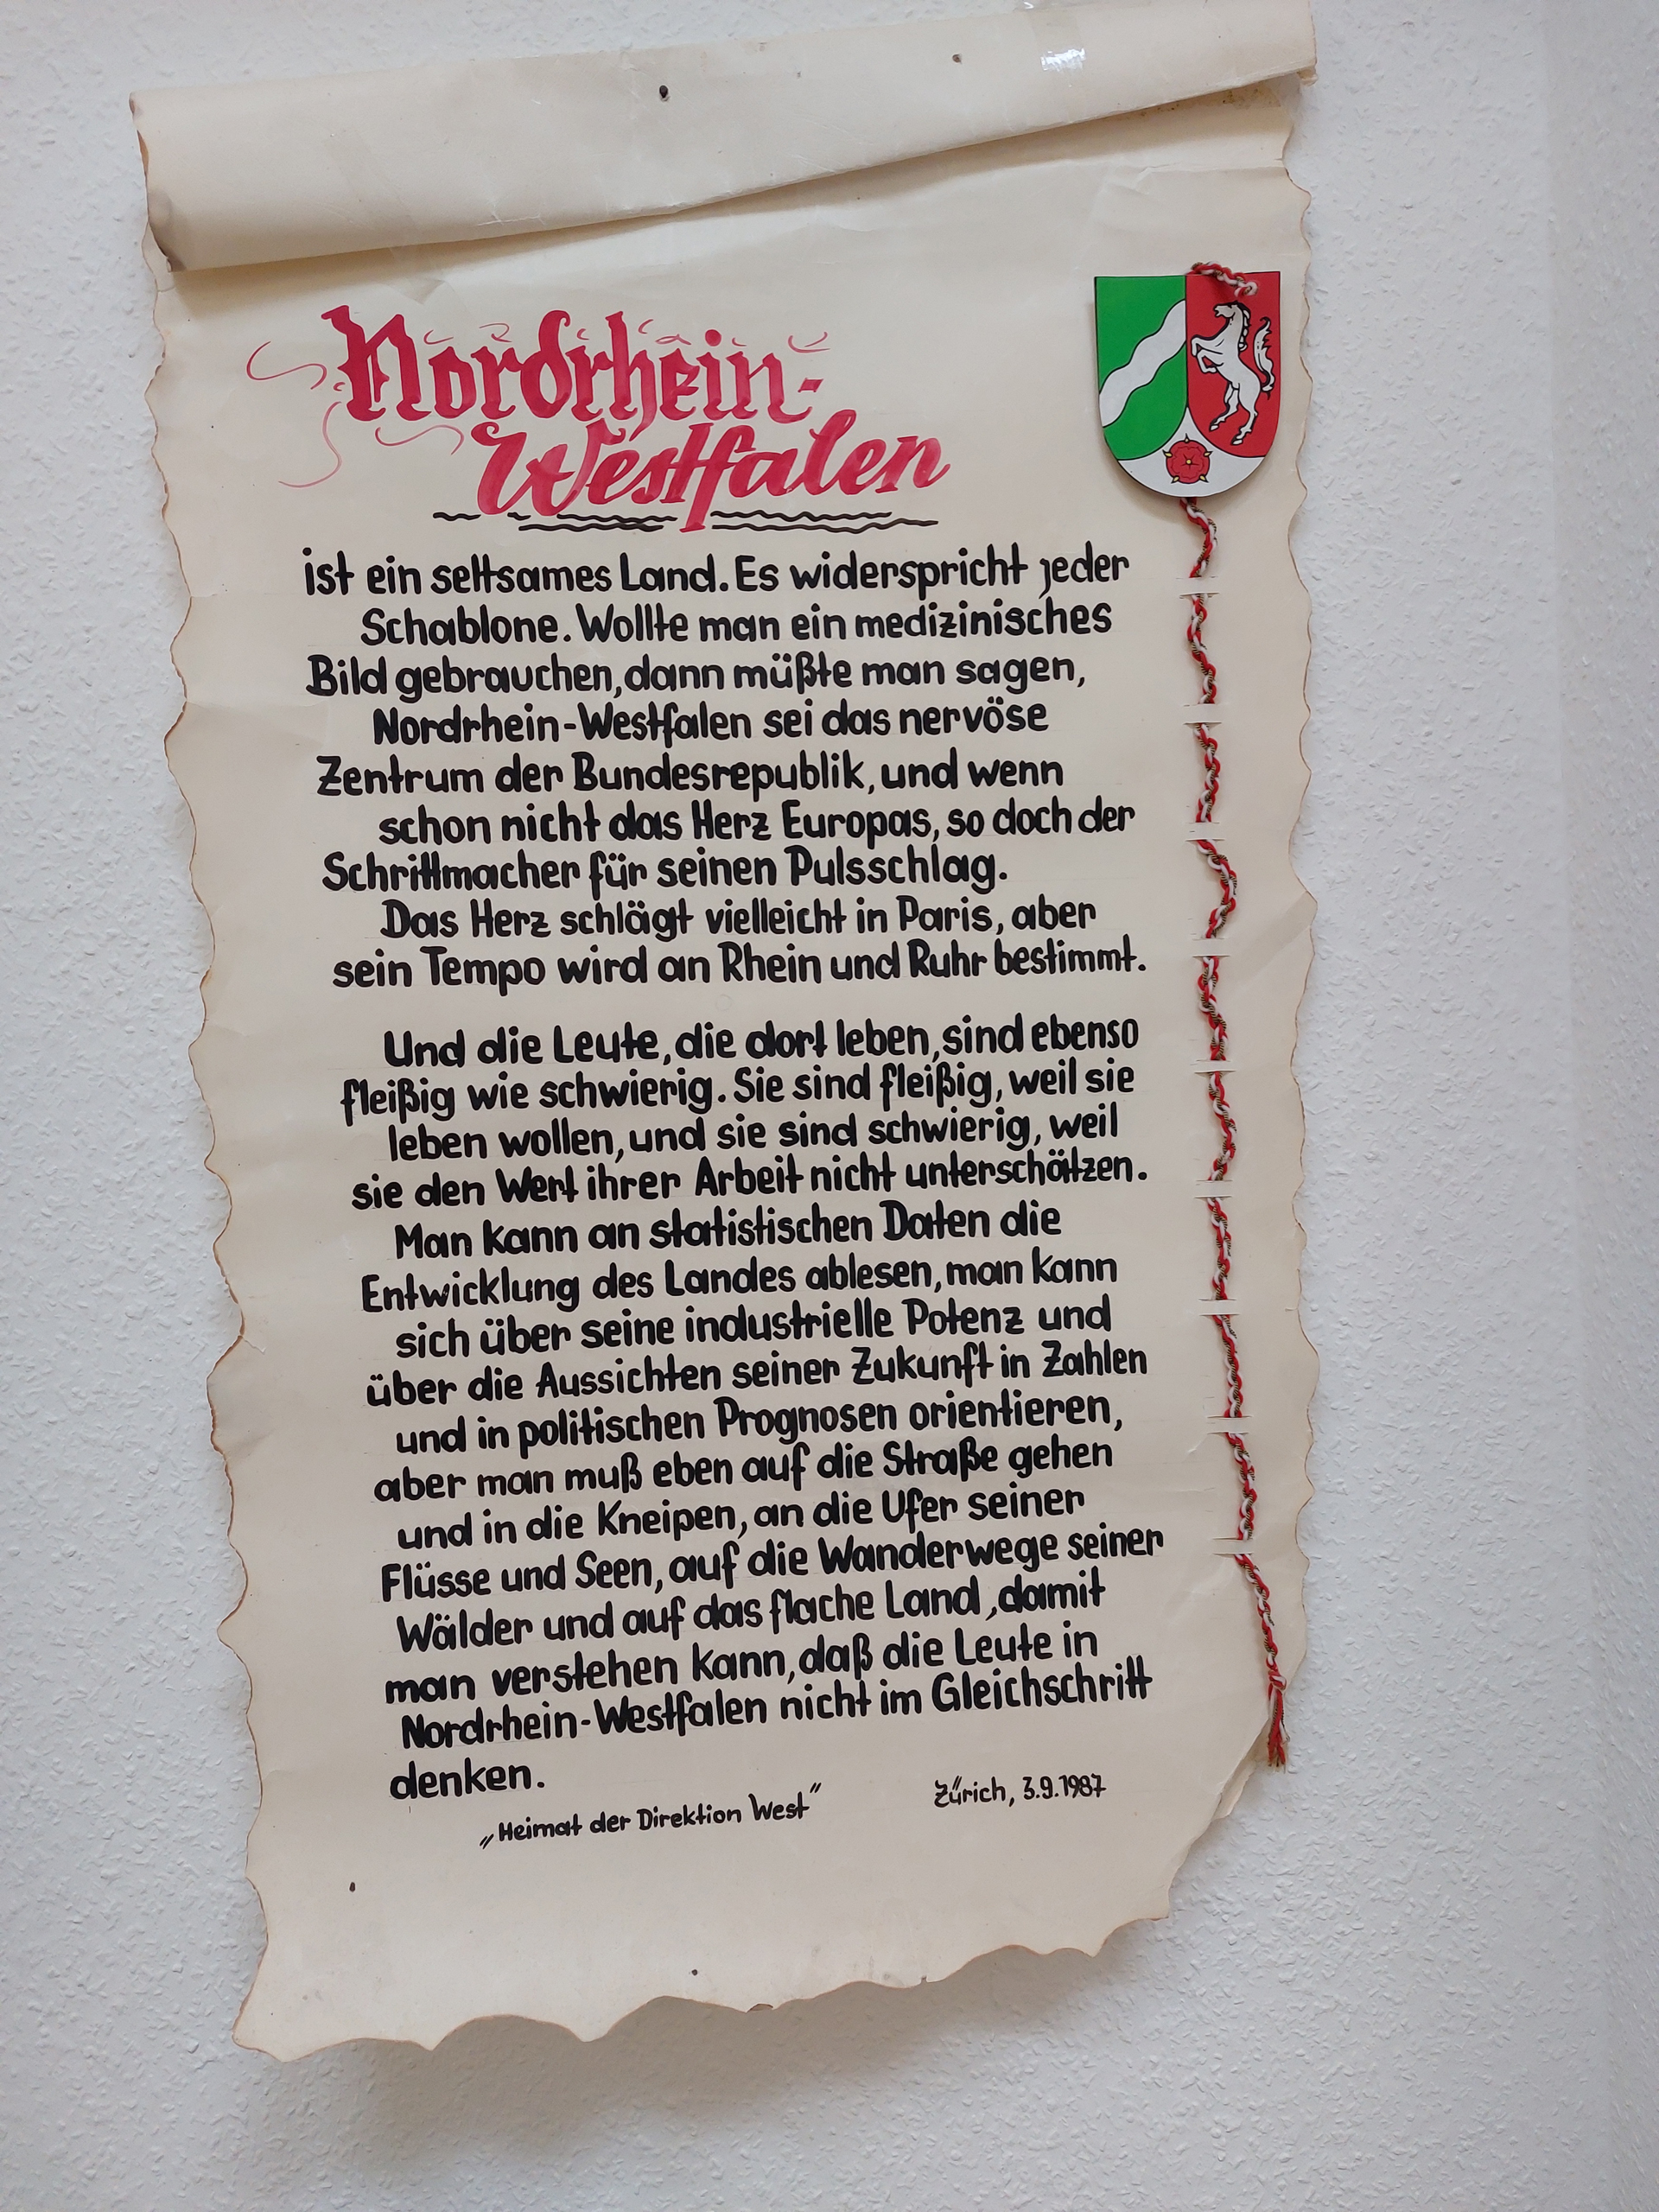 Nordrhein-
Westfalen
ist ein seltsames Land. Es widerspricht jeder
Schablone. Wollte man ein medizinisches
Bild gebrauchen, dann müßte man sagen,
Nordrhein-Westfalen sei das nervöse
Zentrum der Bundesrepublik, und wenn
schon nicht das Herz Europas, so doch der
Schrittmacher für seinen Pulsschlag.
Das Herz schlägt vielleicht in Paris, aber
sein Tempo wird an Rhein und Ruhr bestimmt.
Und die Leute, die dort leben, sind ebenso
fleißig wie schwierig. Sie sind fleißig, weil sie
leben wollen, und sie sind schwierig, weil
sie den Wert ihrer Arbeit nicht unterschätzen.
Man kann an statistischen Daten die
Entwicklung des Landes ablesen, man kann
sich über seine industrielle Potenz und
über die Aussichten seiner Zukunft in Zahlen
und in politischen Prognosen orientieren,
aber man muß eben auf die Straße gehen
und in die Kneipen, an die Ufer seiner
Flüsse und Seen, auf die Wanderwege seiner
Wälder und auf das flache Land, damit
man verstehen kann, daß die Leute in
Nordrhein-Westfalen nicht im Gleichschritt
denken.
„Heimat der Direktion West" Zürich, 3.9.1987